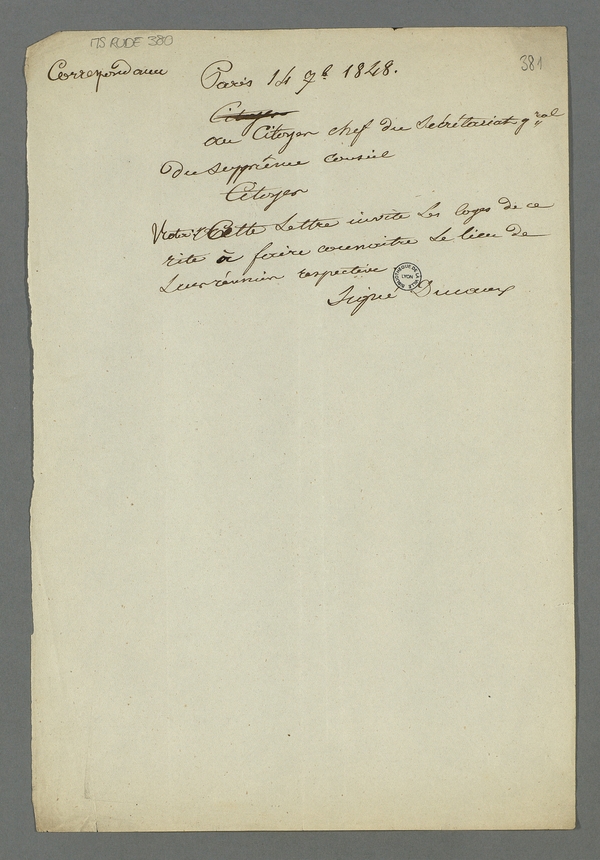 MS RUDE 380
381
Correspondance
Paris 14 7b 1848.
Citoyen
au Citoyen chef du Secrétariat gral
du Supprême conseil
Citoyen
Nota: Cette Lettre invite Les loges de ce
rite à faire connaitre Le lieu de
Leur réunion respective
BIBLIOTHEQUE DE LA VILLE LYON
Signé